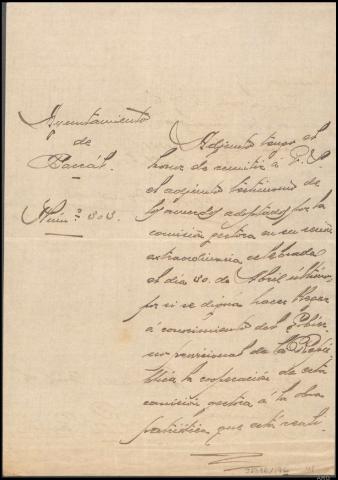 Ayuntamiento
de
Núm.º 303.
Adjunto tengo el
honor de remitir á V.S.
el adjunto testimonio de
los acuerdos adoptados por la
comisión gestora en su sesión
extraordinaria celebrada
el día 30 de Abril último
por si se digna hacer llegar
á conocimiento del Gobier-
no provisional de la Repú-
blica la cooperación de esta
comisión gestora á la obra
patriótica que está reali-